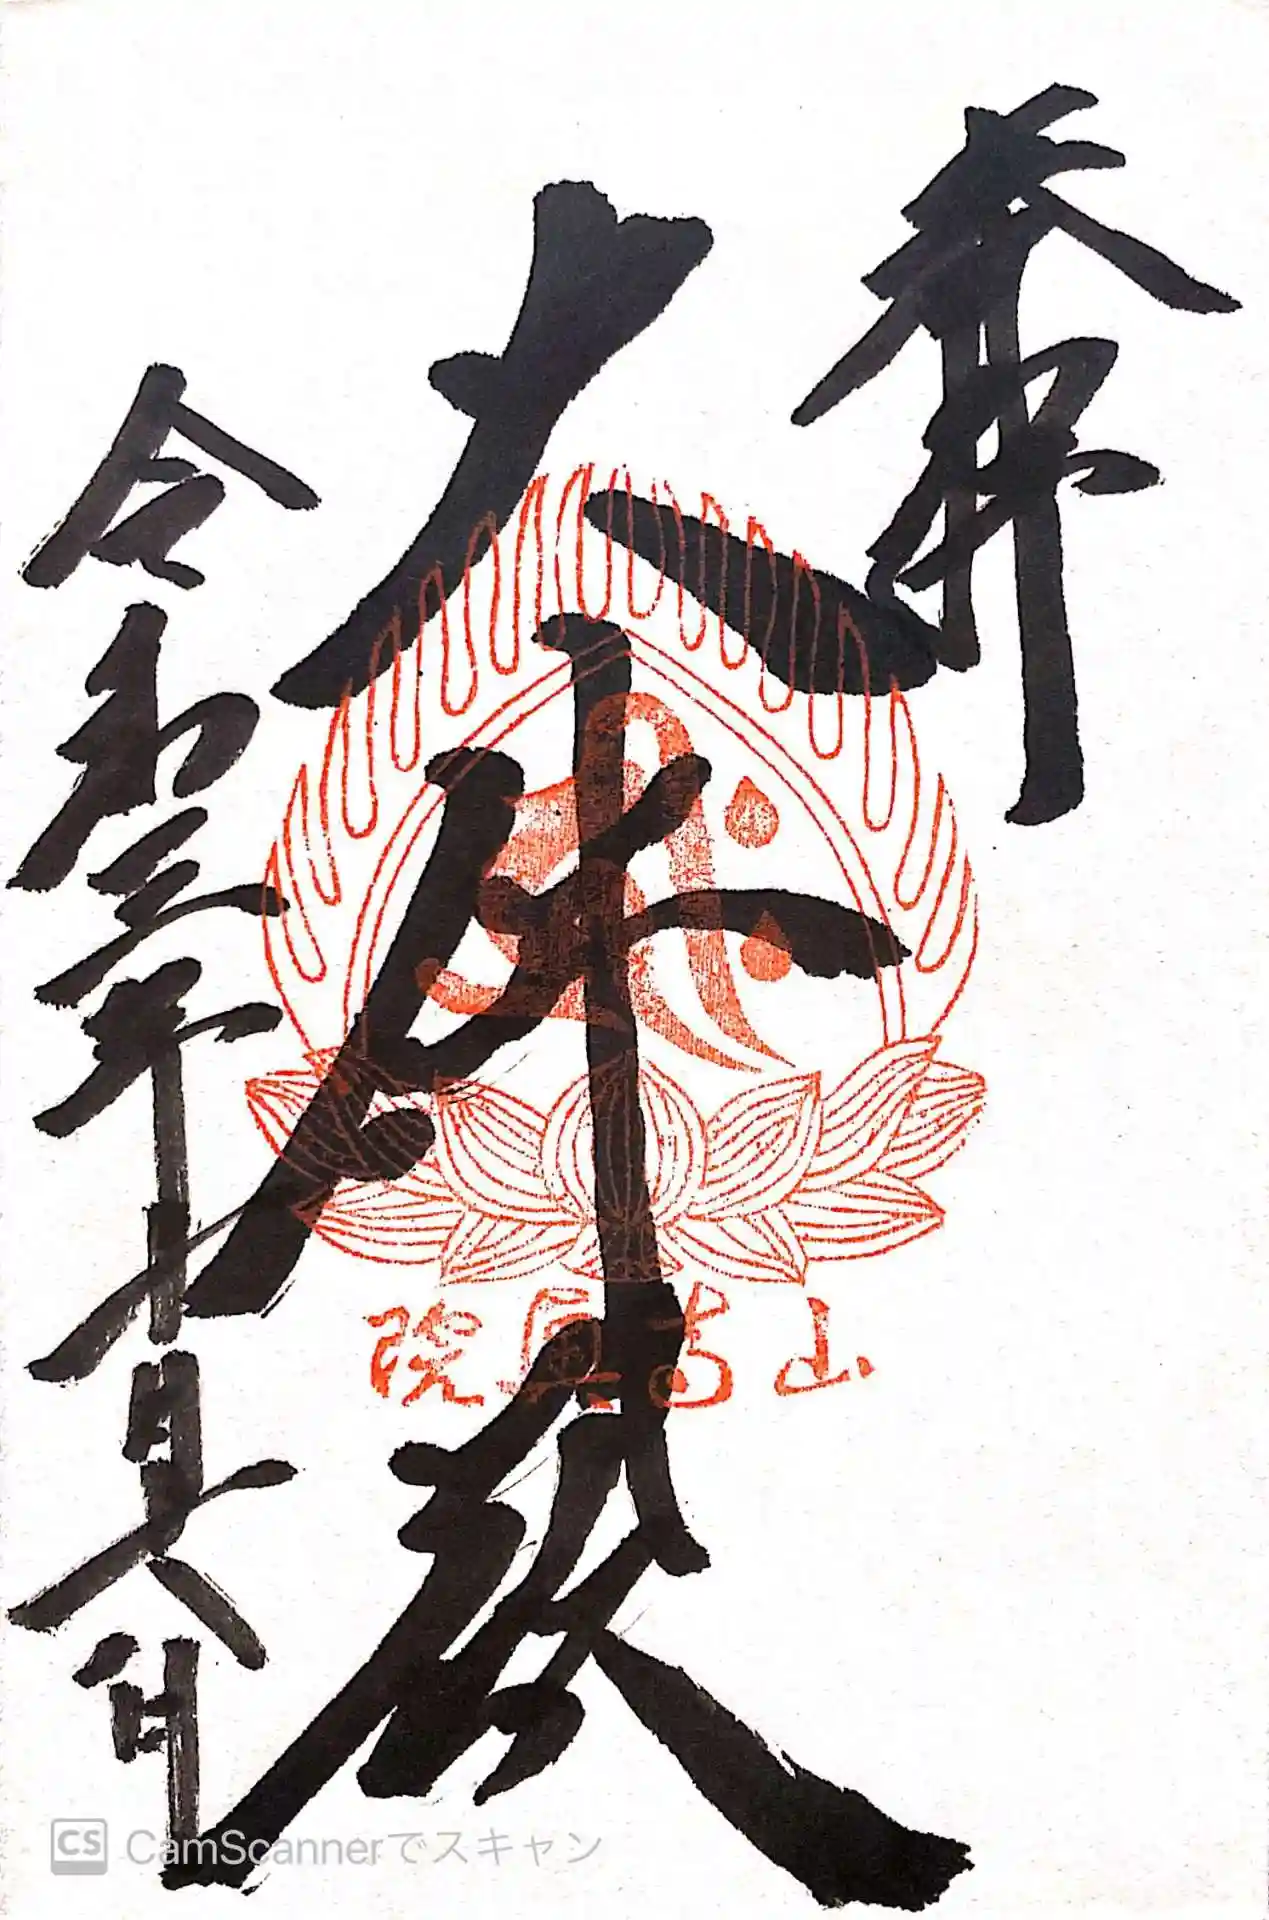 奉拝
大師殿
山高奥院
令和三年十月六日
CamScannerでスキャン